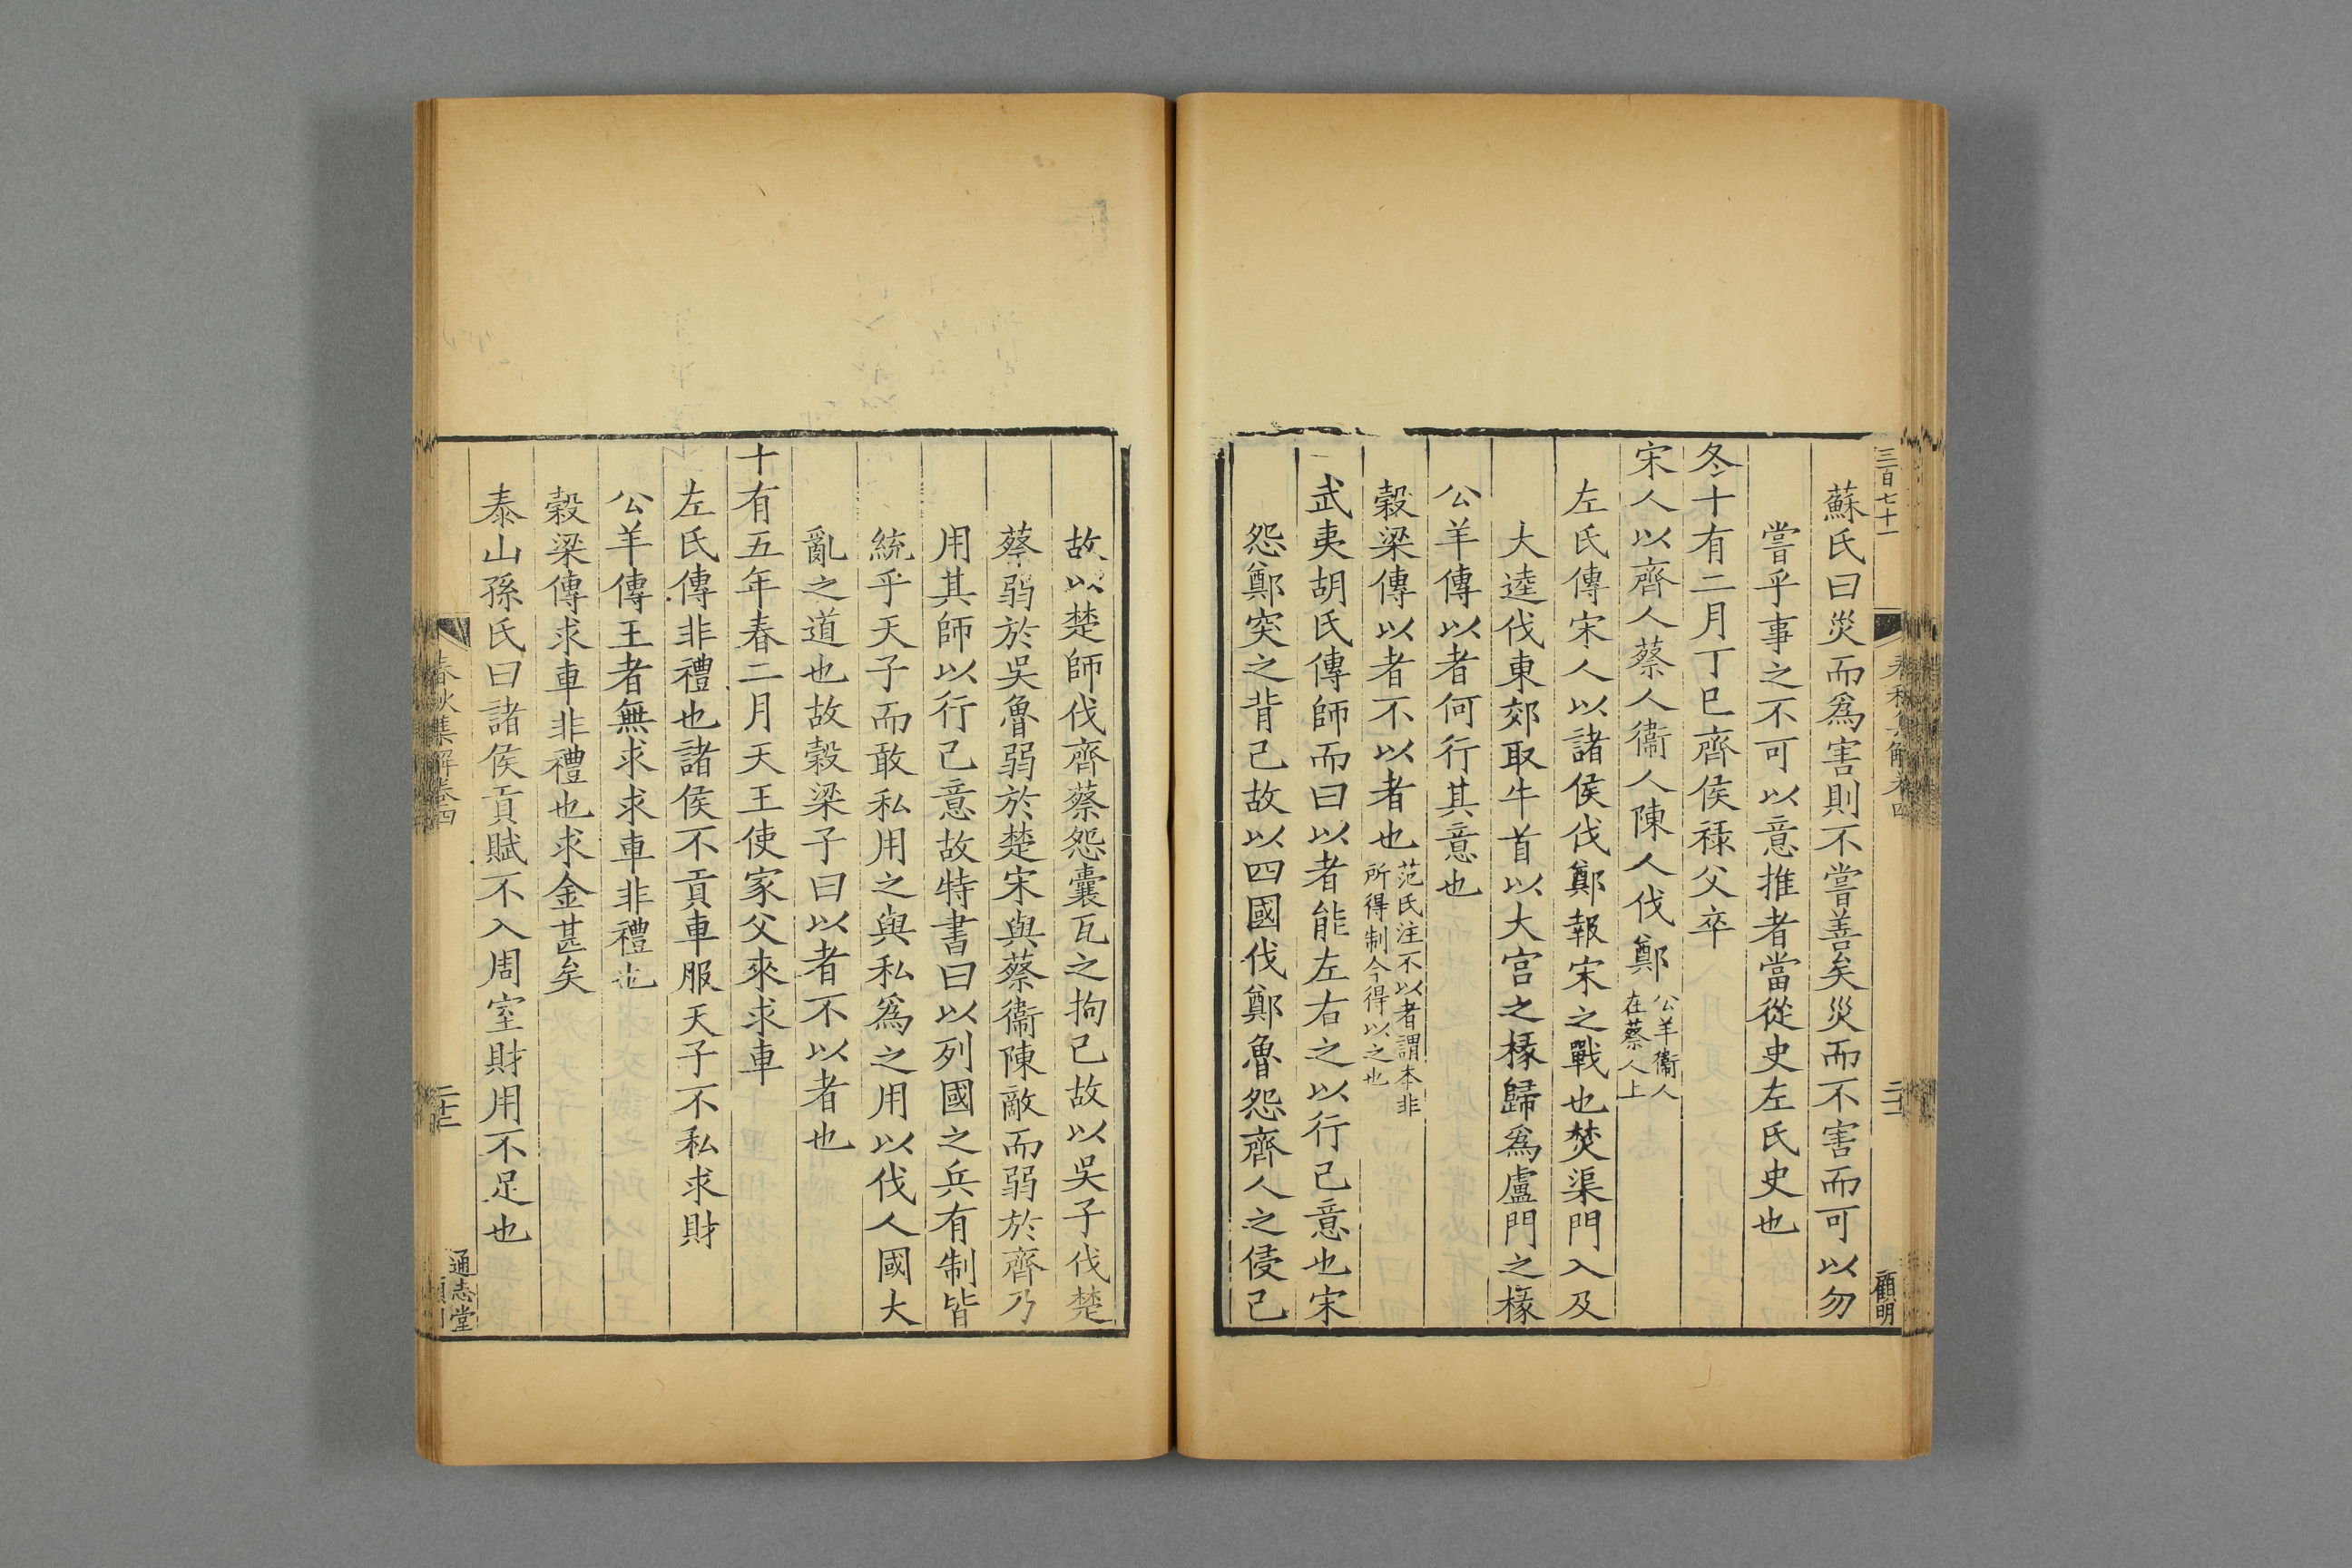 三百七十一
顧明
蘇氏曰災而爲害則不嘗善矣災而不害而可以勿
嘗乎事之不可以意推者當從史左氏史也
冬十有二月丁巳齊侯祿父卒
宋人以齊人蔡人衞人陳人伐鄭公羊衞人
在蔡人上
左氏傳宋人以諸侯伐鄭報宋之戰也焚渠門入及
大逵伐東郊取牛首以大宮之椽歸爲盧門之椽
公羊傳以者何行其意也
穀梁傳以者不以者也范氏注不以者謂本非
所得制今得以之也
武夷胡氏傳師而曰以者能左右之以行己意也宋
怨鄭突之背己故以四國伐鄭魯怨齊人之侵己
故以楚師伐齊蔡怨囊瓦之拘己故以吳子伐楚
蔡弱於吳魯弱於楚宋與蔡衞陳敵而弱於齊乃
用其師以行己意故特書曰以列國之兵有制皆
統乎天子而敢私用之與私爲之用以伐人國大
亂之道也故穀梁子曰以者不以者也
十有五年春二月天王使家父來求車
左氏傳非禮也諸侯不貢車服天子不私求財
公羊傳王者無求求車非禮也
穀梁傳求車非禮也求金甚矣
泰山孫氏曰諸侯貢賦不入周室財用不足也
春秋集解卷四
通志堂